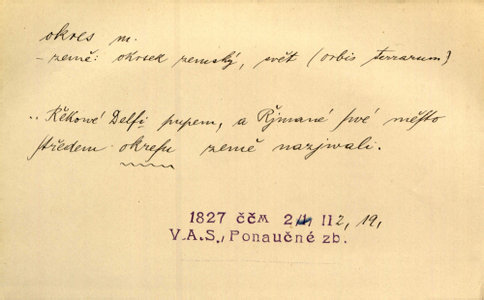 okres m.
- země: okrsek zemský, svět (orbis terrarum)
„Řěkowé Delfi pupem, a Řjmané swé město
středem okresu země nazjwali.
1827 ččM II2, 19,
V.A.S., Ponaučné zb.